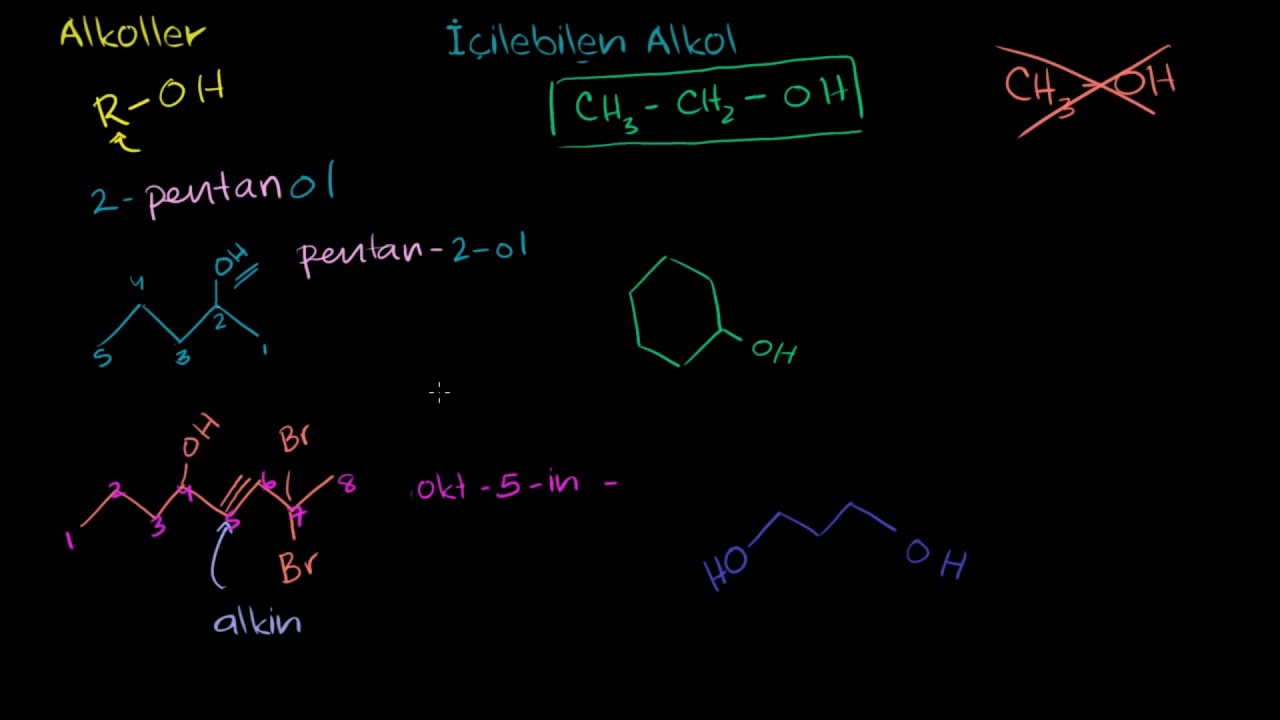 Alkoller
R-OH
İçilebilen Alkol
CH3-CH2-OH
CH3-OH
2-pentanol
pentan-2-ol
OH
4
2
5
3
1
OH
OH
Br
1
2
3
4
5
6
7
8
Br
okt-5-in-
alkin
HO
OH